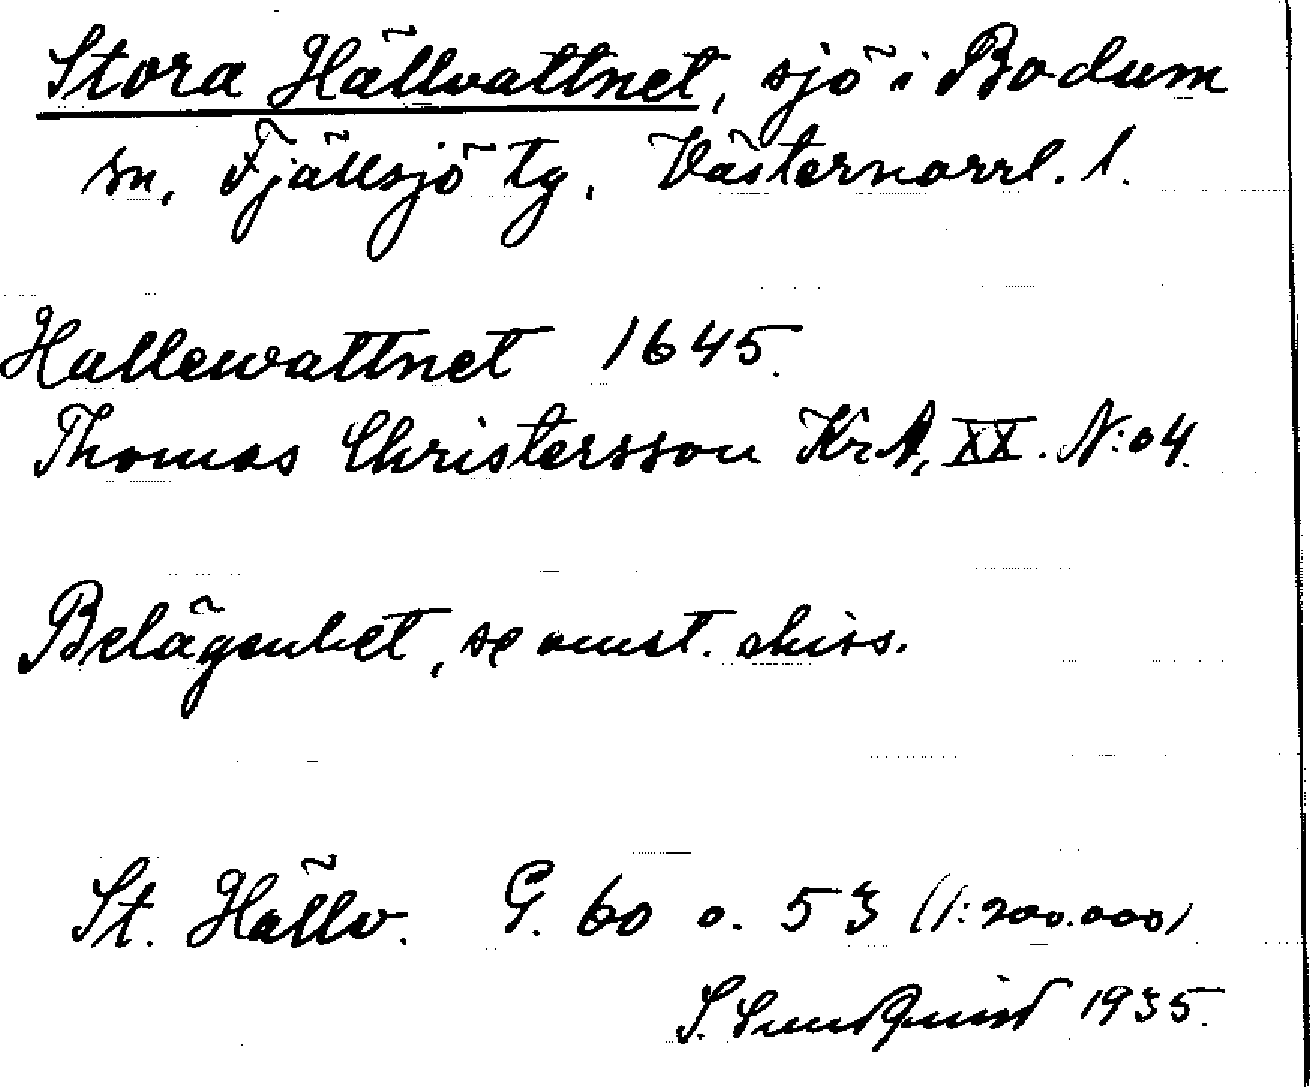 Stora Hällvattnet, sjö i Bodum
sn, Fjällsjö tg. Västernorrl. l.
Hallewattnet 1645.
Thomas Christersson KrA, XX. N:o 4.
Belägenhet, se omst. skiss.
St. Hällv. G. 60 o. 53 (1:200.000)
S. Sundquist 1935.